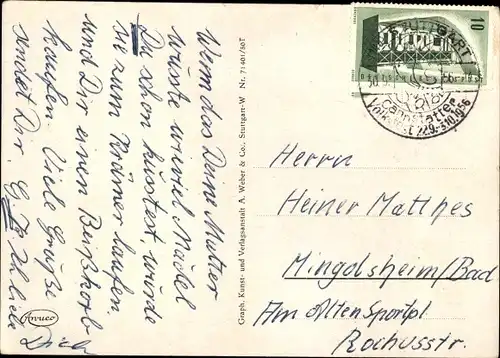 Wenn das Deine Mutter
wüsste wieviel Mädel
Du schon küsstest, würde
sie zum Krämer laufen
und Dir einen Beißkorb
kaufen. Viele Grüße
sendet Dir
Dich
Anuco
Graph. Kunst- und Verlagsanstalt A. Weber & Co., Stuttgart-W Nr. 71401/50T
10
STUTTGART
Cannstatter
Volksfest 22.9.-3.10.1956
Herrn
Heiner Matthes
Mingolsheim/Bad
Am Alten Sportpl.
Rochusstr.